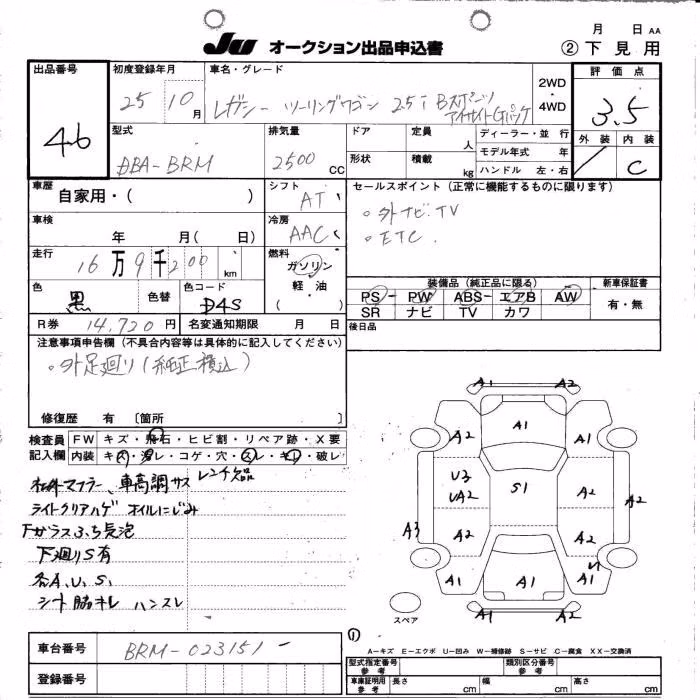 月 日 AA
JU オークション出品申込書 ② 下見用
出品番号 初度登録年月 車名・グレード 2WD・4WD 評価点
46 25 10月 レガシー ツーリングワゴン 2.5i Bスポーツ
アイサイトGパッケ 3.5
型式 排気量 ドア 定員 人 ディーラー・並行 外装 内装
DBA-BRM 2500 CC 形状 積載 kg モデル年式 年
ハンドル 左・右 C
車歴 自家用・( ) シフト AT セールスポイント(正常に機能するものに限ります)
車検 年 月( 日) 冷房 AAC 。外ナビ.TV
。ETC.
走行 16万9千200 km 燃料 ガソリン・軽油・( )
装備品(純正品に限る) 新車保証書
色 黒 色替 色コード D4S
PS PW ABS エアB AW 有・無
SR ナビ TV カワ
R券 14,720円 名変通知期限 月 日 後日品
注意事項申告欄(不具合内容等は具体的に記入してください)
。外足廻り(純正積込)
修復歴 有 〔箇所 〕
検査員記入欄 FW キズ・飛石・ヒビ割・リペア跡・X要
内装 キズ・汚レ・コゲ・穴・スレ・キレ・破レ
社外マフラー、車高調サス レンチ欠品
ライトクリアハゲ オイルにじみ
Fガラスふち気泡
下廻りS有
各A.U.S.
シート脇キレ ハンスレ
A1 A2
A2 A1 A1
U3
UA2 S1 A2 A2
A3 A2 A2
A1 A1 U1
A1 A2
スペア
①
A-キズ E-エクボ U-凹み W-補修跡 S-サビ C-腐食 XX-交換済
車台番号 BRM-023151
登録番号
型式指定番号 参考 類別区分番号 参考
車庫証明用 参考 長さ cm 幅 cm 高さ cm